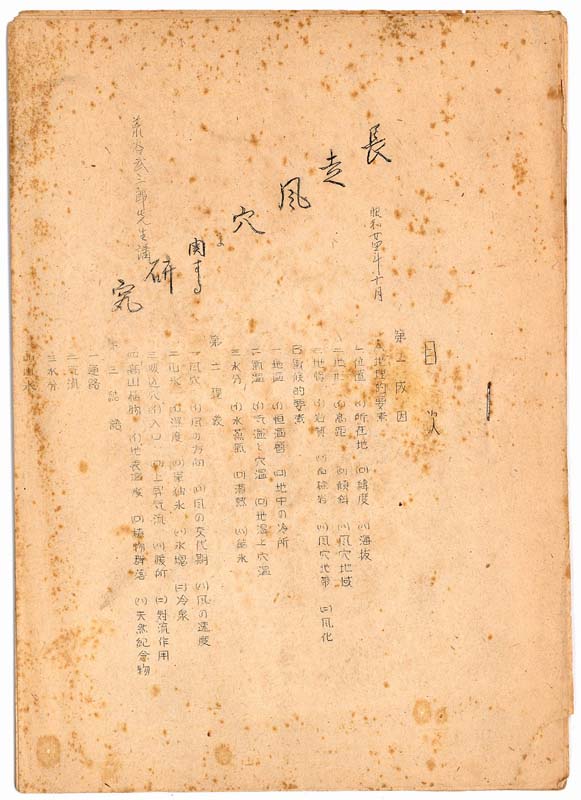 長走風穴に関する研究
昭和廿四年十月
荒谷武三郎先生講
目次
第一成因
地理的要素
1位置 (イ)所在地 (ロ)緯度 (ハ)海抜
二地形 (イ)高距 (ロ)傾斜 (ハ)風穴地域
三地質 (イ)岩質 (ハ)風穴地帯 (二)風化
気候的要素
一地温 (イ)恒温層 (ロ)地中の冷所
二気温 (イ)気温と穴温 (ロ)地温と穴温
三水分 (イ)水蒸気 (ロ)潜熱
第二現義
一風穴 (イ)風の方向 (ロ)風の交代期 (ハ)風の速度
二山氷 (イ)湿度 (ハ)氷塊 (二)冷泉
三吸込穴 (イ)入口 (ロ)上昇気流 (ハ)暖所 (二)対流作用
四高山植物 (イ)地表温度 (ロ)植物群落 (ハ)天然紀念物
第三
一通路
二気流
三水分
四山氷